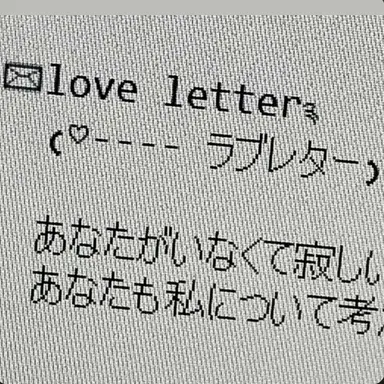 ✉love letterર
(♡---- ラブレター)
あなたがいなくて寂しい
あなたも私について考